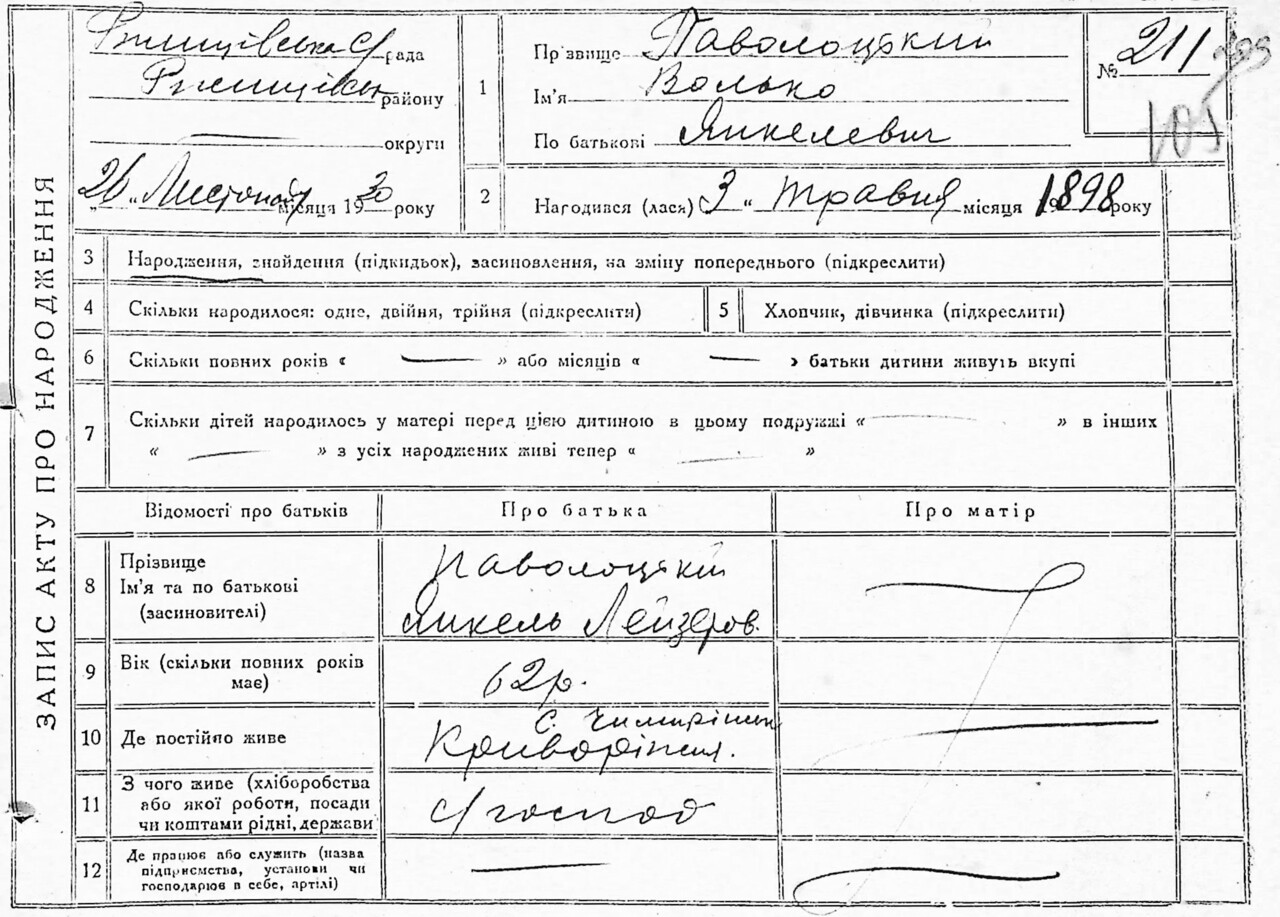 ЗАПИС АКТУ ПРО НАРОДЖЕННЯ
Ржищівська с/рада
Ржищівськ району
округи
„26“ Листопад місяця 1930 року
1
Прізвище Паволоцький
Ім'я Волько
По батькові Янкелевич
№ 211
105
2
Народився (лася) 3 „ травня місяця 1898 року
3 Народження, знайдення (підкидьох), засиновлення, на зміну попереднього (підкреслити)
4 Скільки народилося: одне, двійня, трійня (підкреслити) 5 Хлопчик, дівчинка (підкреслити)
6 Скільки повних років « » або місяців « » батьки дитини живуть вкупі
7 Скільки дітей народилось у матері перед цією дитиною в цьому подружжі « » в інших
« » з усіх народжених живі тепер « »
Відомості про батьків Про батька Про матір
8 Прізвище
Ім'я та по батькові
(засиновителі)
Паволоцький
Янкель Лейзеров.
9 Вік (скільки повних років
має)
62р.
10 Де постійно живе
с.
11 З чого живе (хліборобства
або якої роботи, посади
чи коштами рідні, держави
с/господ
12 Де працює або служить (назва
підприємства, установи чи
господарює в себе, артілі)